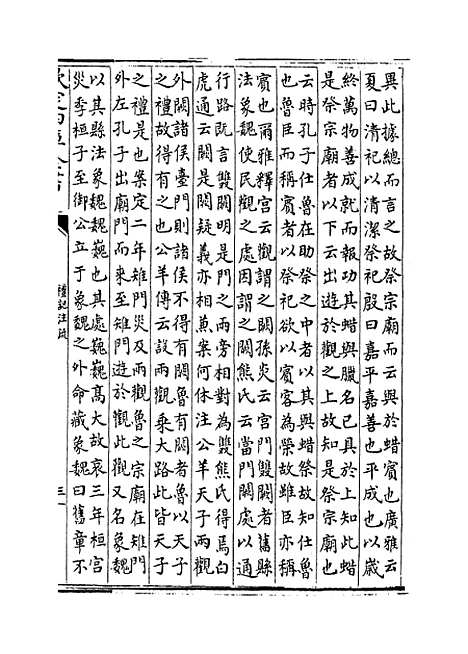 異此據總而言之故祭宗廟而云與於蜡賓也廣雅云
夏曰清祀以清潔祭祀殷曰嘉平嘉善也平成也以歲
終萬物善成就而報功其蜡與臘名已具於上知此蜡
是祭宗廟者以下云出遊於觀之上故知是祭宗廟也
云時孔子仕魯在助祭之中者以其與蜡祭故知仕魯
也魯臣而稱賓者以祭祀欲以賓客為榮故雖臣亦稱
賓也爾雅釋宮云觀謂之闕孫炎云宮門雙闕者舊縣
法象魏使民觀之處因謂之闕熊氏云當門闕處以通
行路既言雙闕明是門之兩旁相對為雙熊氏得焉白
虎通云闕是闕疑義亦相兼案何休注公羊天子兩觀
外闕諸侯臺門則諸侯不得有闕者魯以天子
之禮故得有之也公羊傳云設兩觀乘大路此皆天子
之禮是也案定二年雉門災及兩觀魯之宗廟在雉門
外左孔子出廟門而來至雉門遊於觀此觀又名象魏
以其縣法象魏魏巍也其處巍巍高大故哀三年桓宮
災季桓子至御公立于象魏之外命藏象魏曰舊章不
禮記注疏